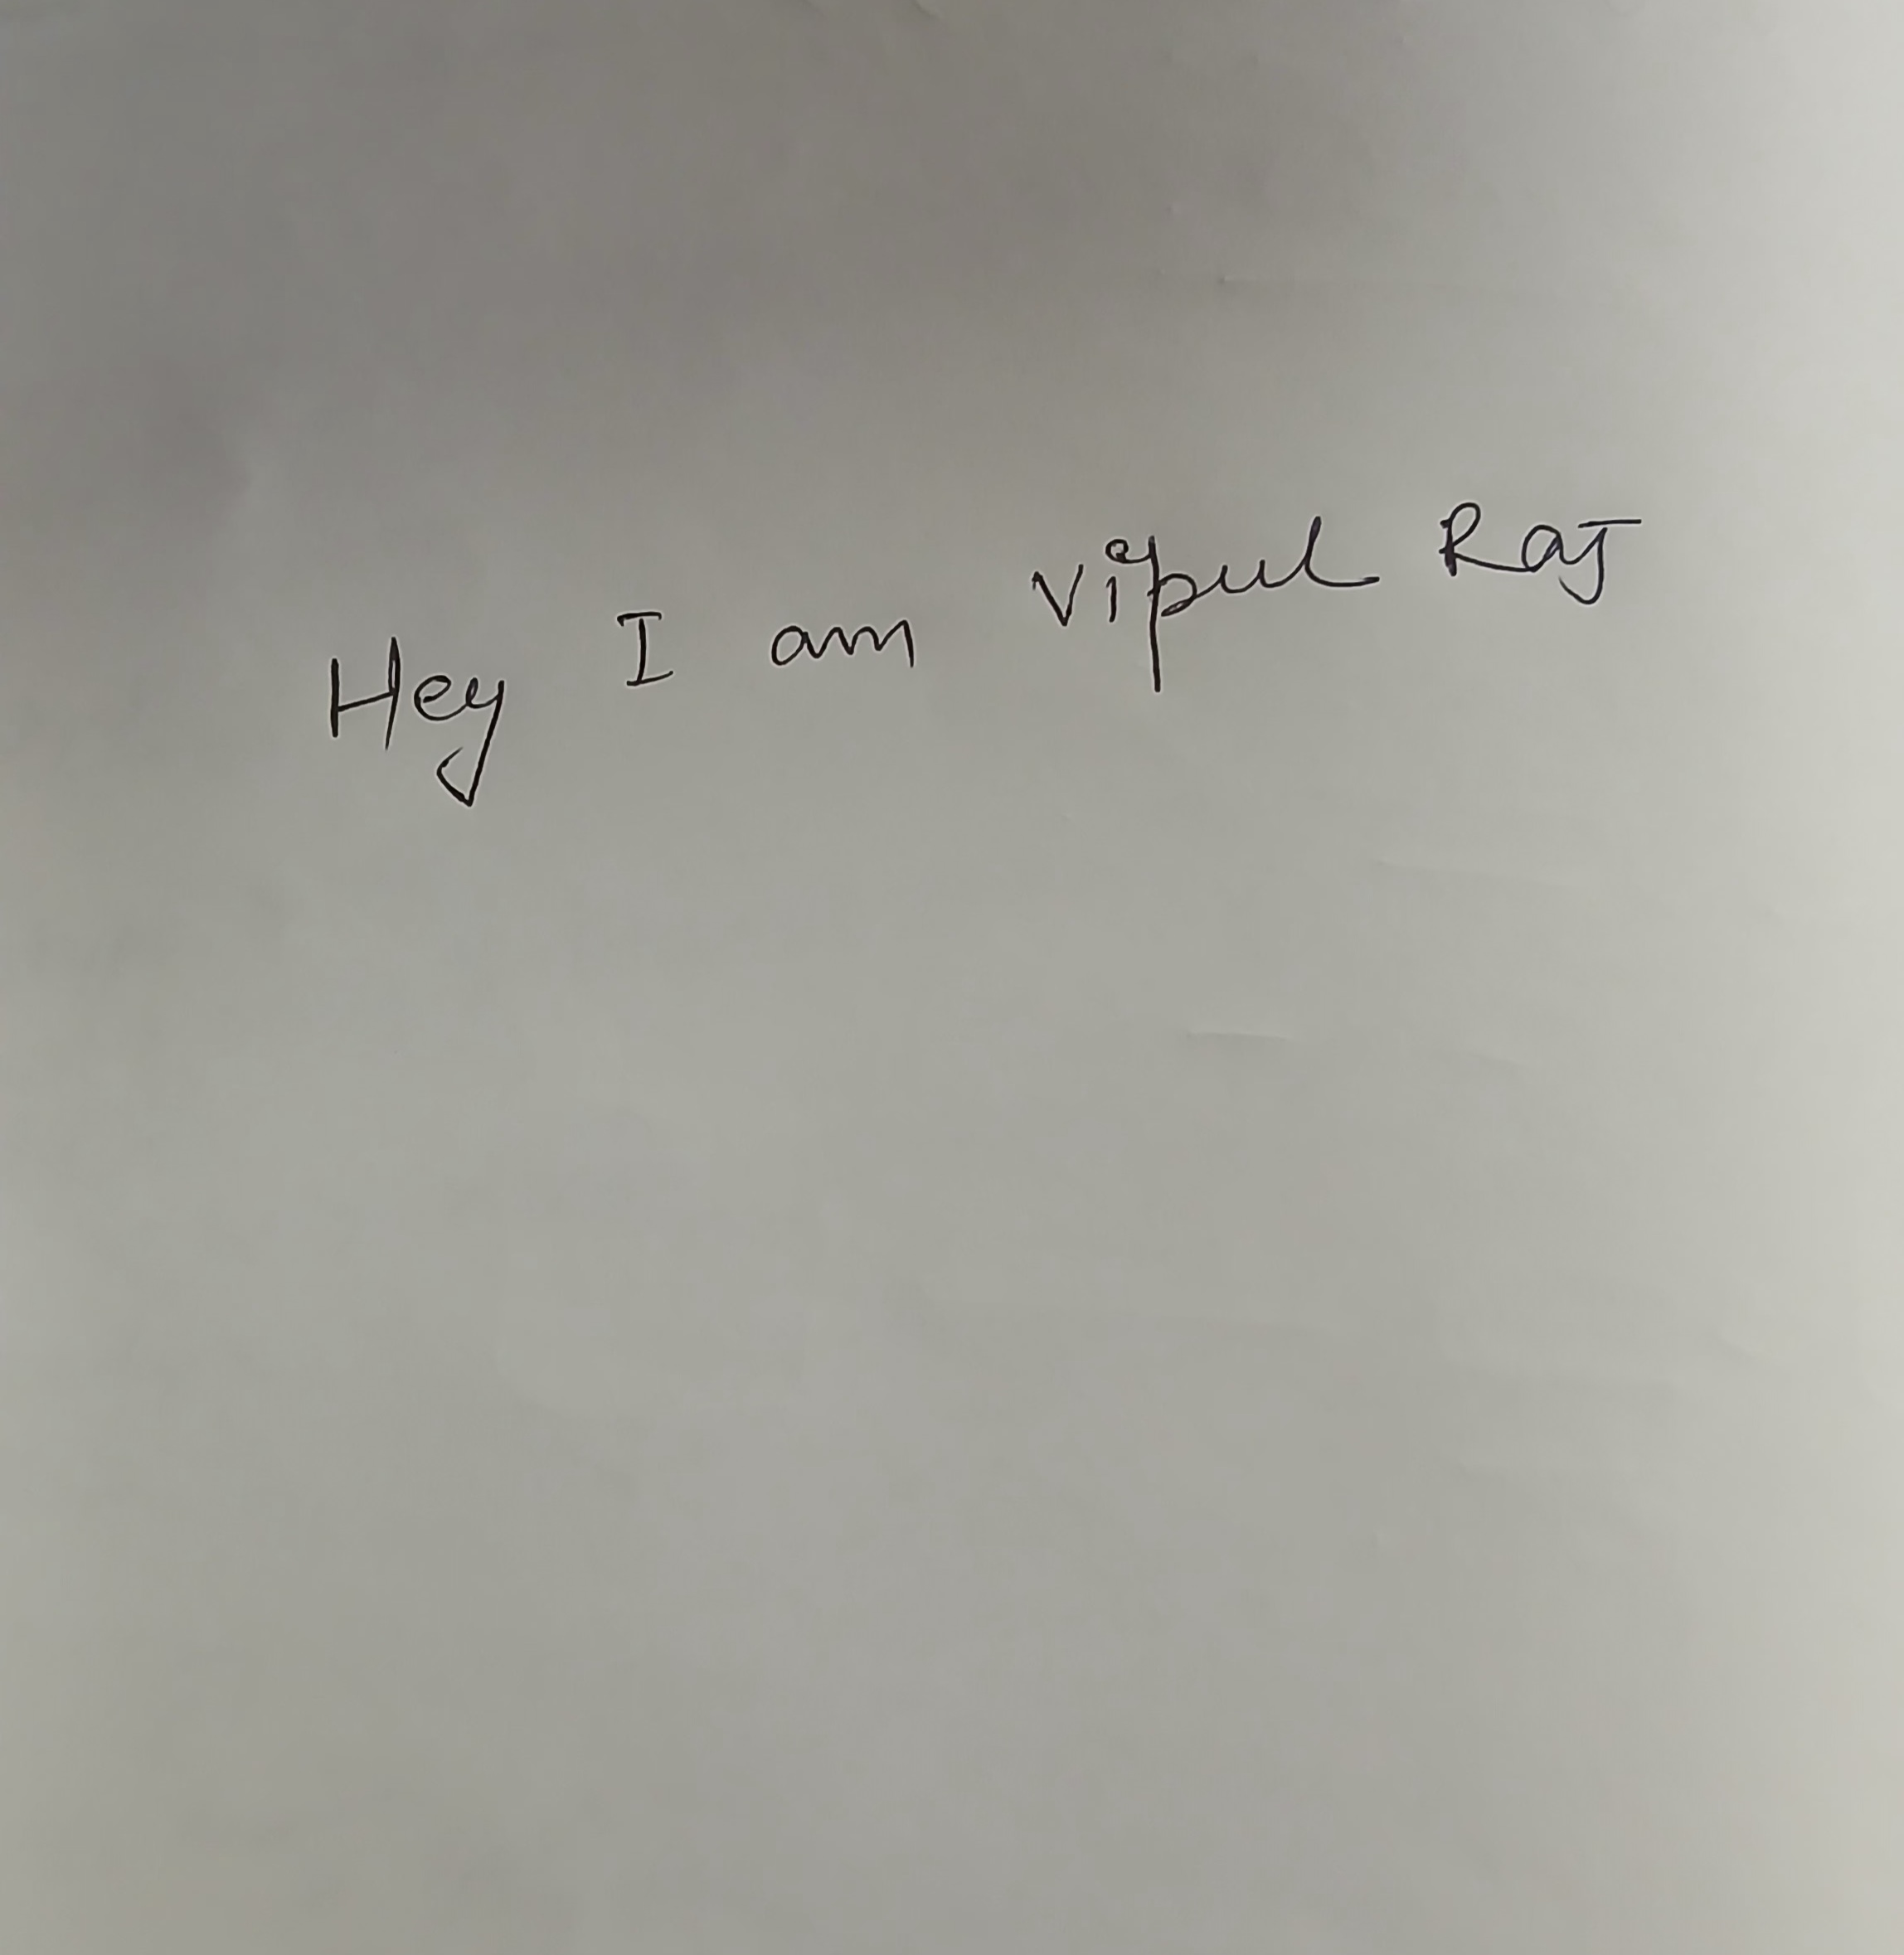 Hey I am vipul Raj